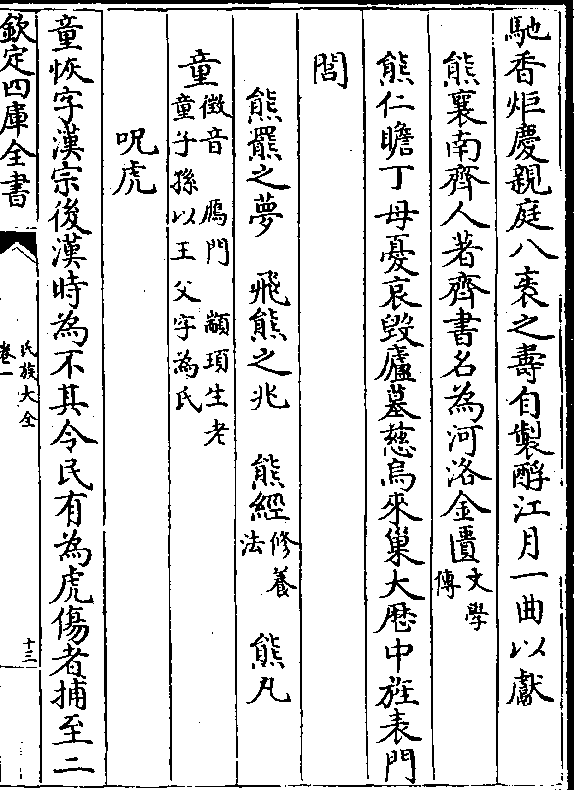 馳香炬慶親庭八袠之壽自製酹江月一曲以獻
熊襄南齊人著齊書名為河洛金匱文學傳
熊仁瞻丁母憂哀毀廬墓慈烏來巢大歴中旌表門
閭
熊羆之夢　飛熊之兆　熊經修養法　熊丸
童徵音　鴈門　顓頊生老童子孫以王父字為氏
呪虎
童恢字漢宗後漢時為不其令民有為虎傷者捕至二
欽定四庫全書
氏族大全
卷一
十三